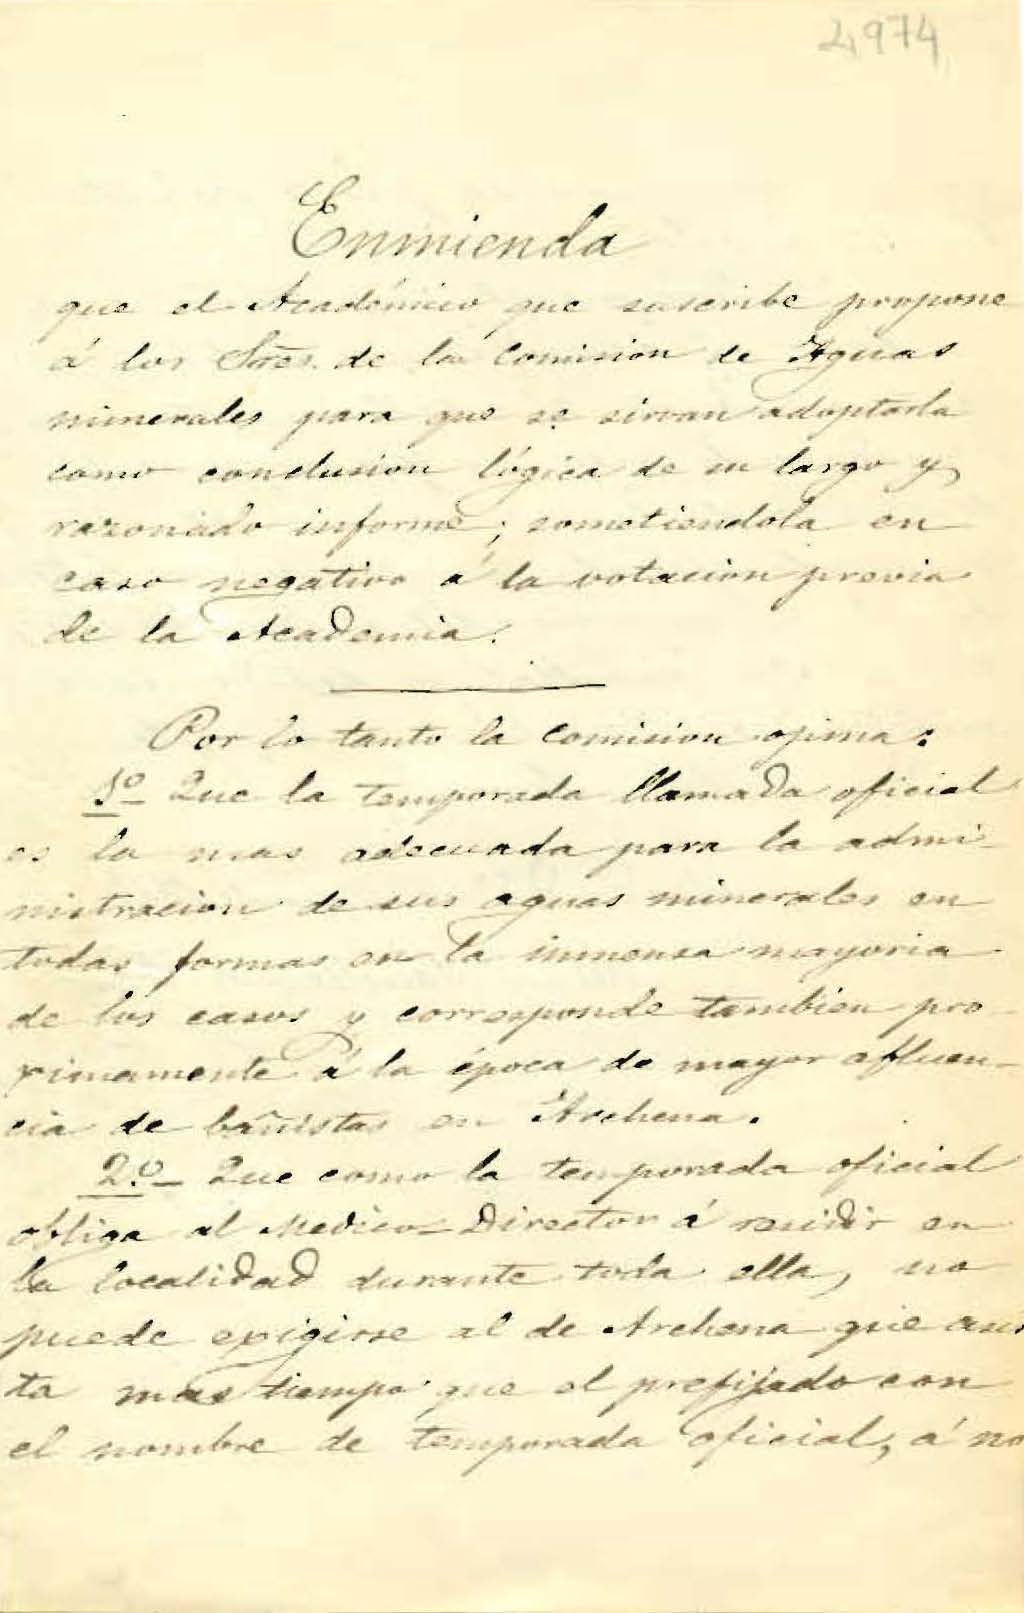 4974
Enmienda
que el Académico que suscribe propone
á los Sres. de la Comision de Aguas
minerales para que se sirvan adoptarla
como conclusion lógica de su largo y
razonado informe; sometiendola en
caso negativo á la votacion previa
de la Academia.
Por lo tanto la Comision opina:
1º Que la temporada llamada oficial
es la mas adecuada para la admi-
nistracion de sus aguas minerales en
todas formas en la inmensa mayoria
de los casos y corresponde tambien pro-
ximamente á la época de mayor afluen-
cia de bañistas en Archena.
2.º Que como la temporada oficial
obliga al Medico-Director á residir en
la localidad durante toda ella, no
puede exigirse al de Archena que asis
ta mas tiempo que el prefijado con
el nombre de temporada oficial, á no